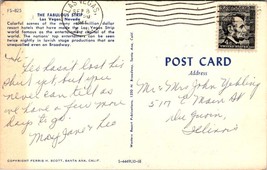 FS-823
THE FABULOUS STRIP
Las Vegas, Nevada
Colorful scenes of the many multi-million dollar
resort hotels that have made the Las Vegas Strip
world famous as the entertainment capital of the
world. The uppermost in entertainment can be seen
twice nightly in lavish stage productions that are
unequalled even on Broadway
LAS VEGAS
Leo hasn't lost his
shirt yet, but you
never can tell as
we have a few more
days to go.
Mary Jane & Leo
COPYRIGHT FERRIS H. SCOTT, SANTA ANA, CALIF.
Western Resort Publications, Santa Ana, Calif.
POST CARD
Address
Mr & Mrs John
517 E Main St
Du Quoin,
Illinois